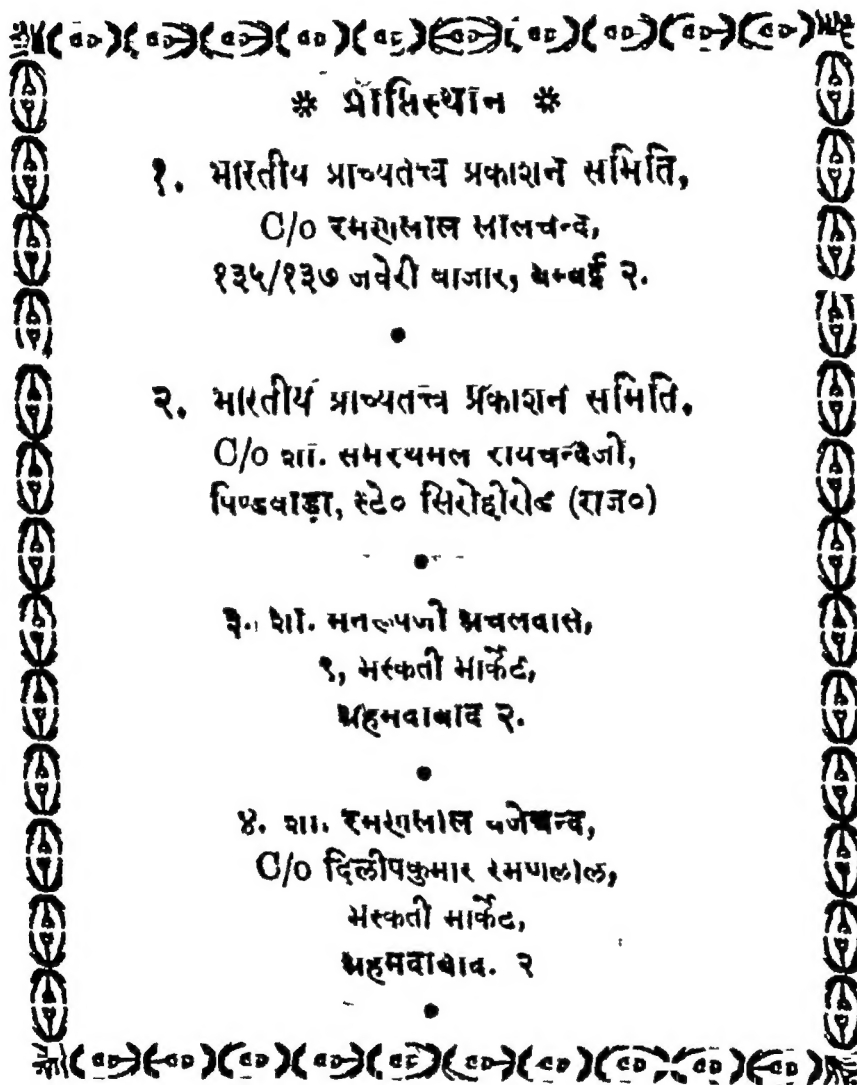 * प्राप्तिस्थान *
१. भारतीय प्राच्यतत्त्व प्रकाशन समिति,
C/o रमणलाल लालचन्द,
१३५/१३७ जवेरी बाजार, बम्बई २.
२. भारतीय प्राच्यतत्त्व प्रकाशन समिति.
C/o शा. समरथमल रायचन्दजी,
पिण्डवाड़ा, स्टे० सिरोहीरोड (राज०)
३. शा. मनरूपजी अचलदास,
९, मस्कती मार्केट,
अहमदाबाद २.
४. शा. रमणलाल वजेचन्द,
C/o दिलीपकुमार रमणलाल,
मस्कती मार्केट,
अहमदाबाद. २